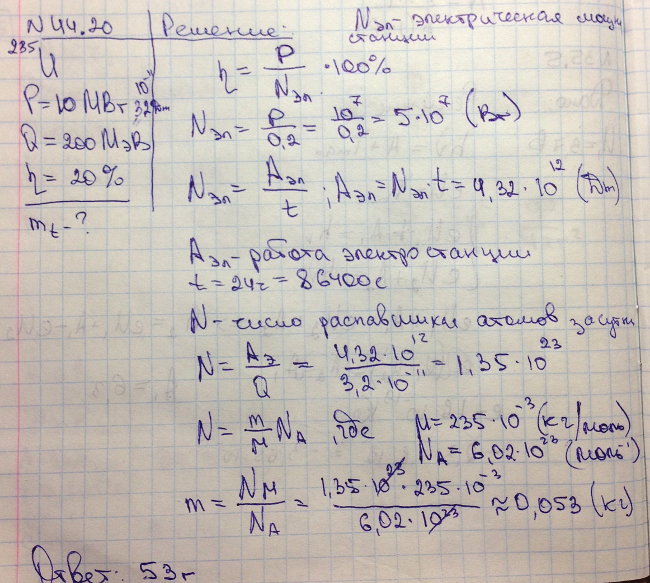 N 44.20 Решение: Nэл - электрическая мощн
станции
235
U
P = 10 МВт
10⁻¹¹
Q = 200 МэВ 3,2·
η = 20%
m_t - ?
η = P/Nэл · 100%
Nэл = P/0,2 = 10⁷/0,2 = 5·10⁷ (Вт)
Nэл = Aэл/t ; Aэл = Nэл·t = 4,32·10¹² (Дж)
Aэл - работа электростанции
t = 24ч = 86400с
N - число распавшихся атомов за сутки
N = Aэ/Q = 4,32·10¹²/3,2·10⁻¹¹ = 1,35·10²³
N = m/M N_A , где M = 235·10⁻³ (кг/моль)
N_A = 6,02·10²³ (моль⁻¹)
m = NM/N_A = 1,35·10²³·235·10⁻³/6,02·10²³ ≈ 0,053 (кг)
Ответ: 53 г